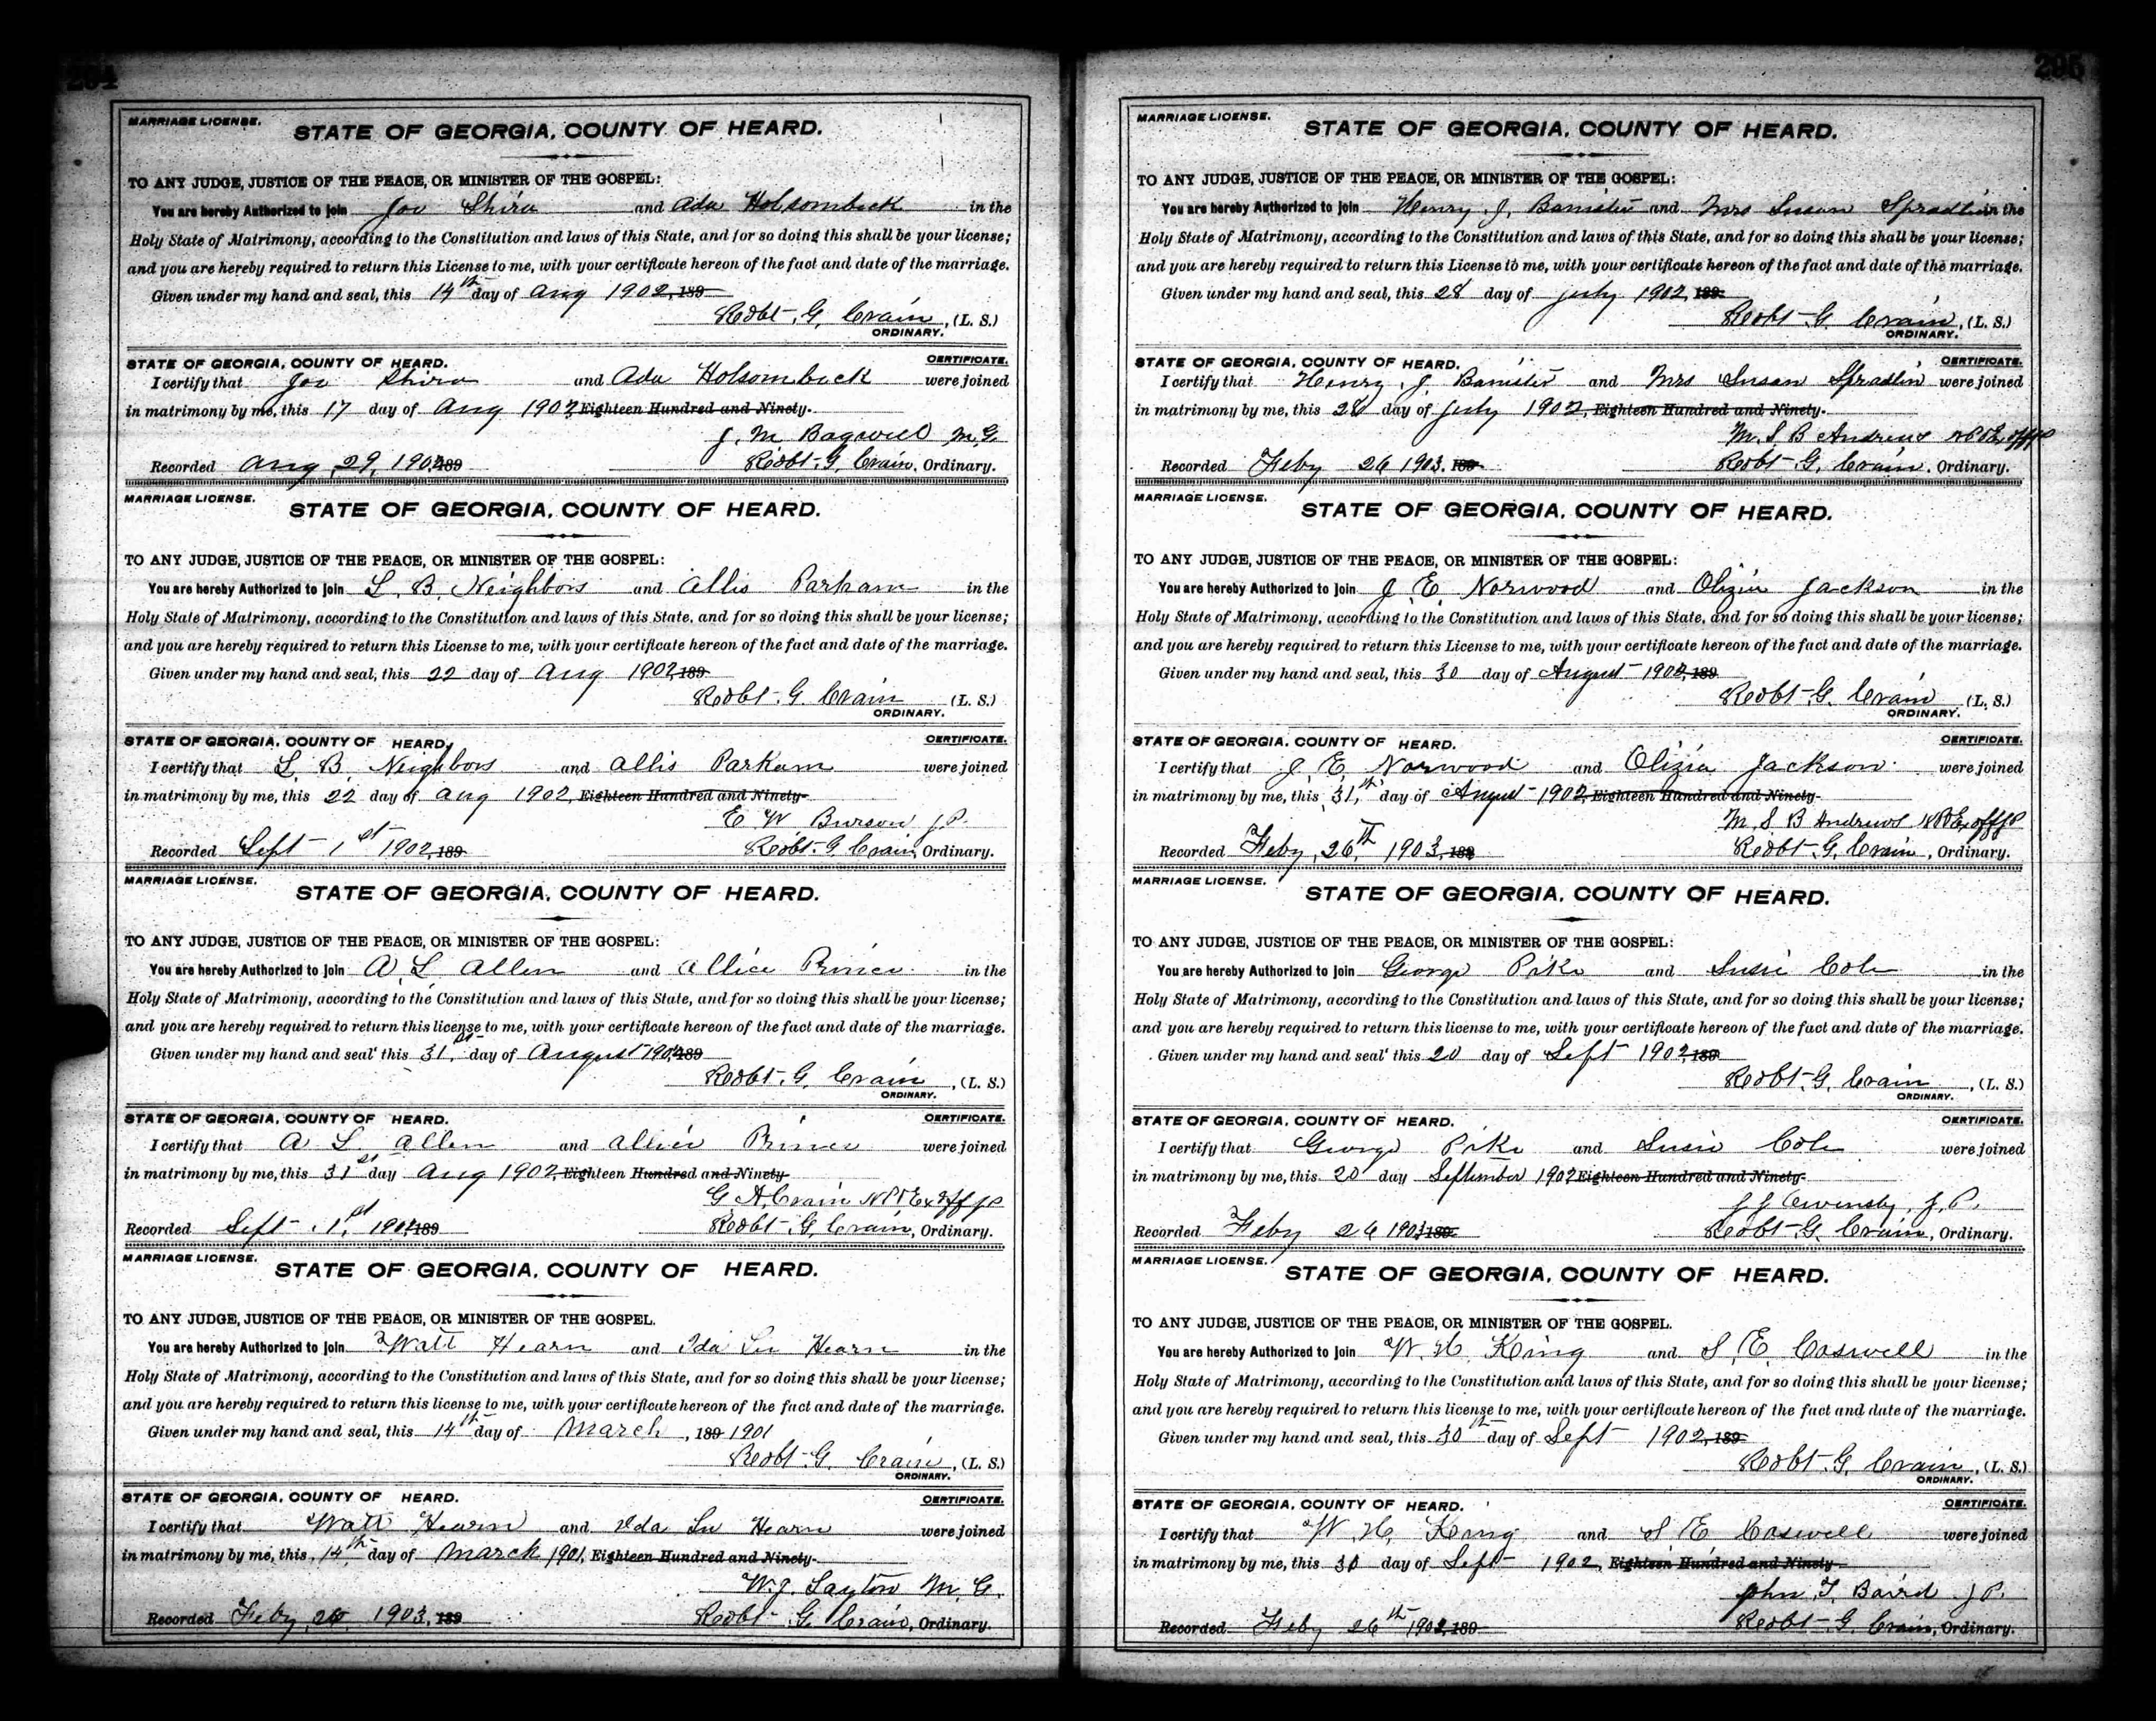 294
MARRIAGE LICENSE.
STATE OF GEORGIA, COUNTY OF HEARD.
TO ANY JUDGE, JUSTICE OF THE PEACE, OR MINISTER OF THE GOSPEL:
You are hereby Authorized to join Joe Shira and Ada Holsombeck in the
Holy State of Matrimony, according to the Constitution and laws of this State, and for so doing this shall be your license;
and you are hereby required to return this License to me, with your certificate hereon of the fact and date of the marriage.
Given under my hand and seal, this 14th day of Aug 1902, 189
Robt. G. Crain, (L. S.)
ORDINARY.
STATE OF GEORGIA, COUNTY OF HEARD. CERTIFICATE.
I certify that Joe Shira and Ada Holsombeck were joined
in matrimony by me, this 17 day of Aug 1902 Eighteen Hundred and Ninety-
J. M. Bagwell M.G.
Recorded Aug 29, 1902 189 Robt. G. Crain, Ordinary.
MARRIAGE LICENSE.
STATE OF GEORGIA, COUNTY OF HEARD.
TO ANY JUDGE, JUSTICE OF THE PEACE, OR MINISTER OF THE GOSPEL:
You are hereby Authorized to join L. B. Neighbors and Allis Parham in the
Holy State of Matrimony, according to the Constitution and laws of this State, and for so doing this shall be your license;
and you are hereby required to return this License to me, with your certificate hereon of the fact and date of the marriage.
Given under my hand and seal, this 22 day of Aug 1902, 189
Robt. G. Crain (L. S.)
ORDINARY.
STATE OF GEORGIA, COUNTY OF HEARD. CERTIFICATE.
I certify that L. B. Neighbors and Allis Parham were joined
in matrimony by me, this 22 day of Aug 1902, Eighteen Hundred and Ninety-
E. W. Burson J.P.
Recorded Sept 1st 1902, 189 Robt. G. Crain, Ordinary.
MARRIAGE LICENSE.
STATE OF GEORGIA, COUNTY OF HEARD.
TO ANY JUDGE, JUSTICE OF THE PEACE, OR MINISTER OF THE GOSPEL:
You are hereby Authorized to join A. L. Allen and Allice Prince in the
Holy State of Matrimony, according to the Constitution and laws of this State, and for so doing this shall be your license;
and you are hereby required to return this license to me, with your certificate hereon of the fact and date of the marriage.
Given under my hand and seal' this 31st day of August 1902 189
Robt. G. Crain, (L. S.)
ORDINARY.
STATE OF GEORGIA, COUNTY OF HEARD. CERTIFICATE.
I certify that A. L. Allen and Allice Prince were joined
in matrimony by me, this 31st day Aug 1902, Eighteen Hundred and Ninety-
G. A. Crain N P & Ex off J P
Recorded Sept 1st 1902 189 Robt. G. Crain, Ordinary.
MARRIAGE LICENSE.
STATE OF GEORGIA, COUNTY OF HEARD.
TO ANY JUDGE, JUSTICE OF THE PEACE, OR MINISTER OF THE GOSPEL.
You are hereby Authorized to join Watt Hearn and Ida Lu Hearn in the
Holy State of Matrimony, according to the Constitution and laws of this State, and for so doing this shall be your license;
and you are hereby required to return this license to me, with your certificate hereon of the fact and date of the marriage.
Given under my hand and seal, this 14th day of March, 189 1901
Robt. G. Crain, (L. S.)
ORDINARY.
STATE OF GEORGIA, COUNTY OF HEARD. CERTIFICATE.
I certify that Watt Hearn and Ida Lu Hearn were joined
in matrimony by me, this 14th day of March 1901, Eighteen Hundred and Ninety-
W. J. Layton M. G.
Recorded Feby 26 1903, 189 Robt. G. Crain, Ordinary.
295
MARRIAGE LICENSE.
STATE OF GEORGIA, COUNTY OF HEARD.
TO ANY JUDGE, JUSTICE OF THE PEACE, OR MINISTER OF THE GOSPEL:
You are hereby Authorized to join Henry J. Banister and Mrs Susan Spradlin in the
Holy State of Matrimony, according to the Constitution and laws of this State, and for so doing this shall be your license;
and you are hereby required to return this License to me, with your certificate hereon of the fact and date of the marriage.
Given under my hand and seal, this 28 day of July 1902, 189
Robt. G. Crain, (L. S.)
ORDINARY.
STATE OF GEORGIA, COUNTY OF HEARD. CERTIFICATE.
I certify that Henry J. Banister and Mrs Susan Spradlin were joined
in matrimony by me, this 28 day of July 1902, Eighteen Hundred and Ninety-
M. S. B Andrews N P Ex off J P
Recorded Feby 26 1903, 189 Robt. G. Crain, Ordinary.
MARRIAGE LICENSE.
STATE OF GEORGIA, COUNTY OF HEARD.
TO ANY JUDGE, JUSTICE OF THE PEACE, OR MINISTER OF THE GOSPEL:
You are hereby Authorized to join J. E. Norwood and Olizia Jackson in the
Holy State of Matrimony, according to the Constitution and laws of this State, and for so doing this shall be your license;
and you are hereby required to return this License to me, with your certificate hereon of the fact and date of the marriage.
Given under my hand and seal, this 30 day of August 1902, 189
Robt. G. Crain (L. S.)
ORDINARY.
STATE OF GEORGIA, COUNTY OF HEARD. CERTIFICATE.
I certify that J. E. Norwood and Olizia Jackson were joined
in matrimony by me, this 31th day of August 1902, Eighteen Hundred and Ninety-
M. S B Andrews N P Ex off J P
Recorded Feby, 26th 1903, 189 Robt. G. Crain, Ordinary.
MARRIAGE LICENSE.
STATE OF GEORGIA, COUNTY OF HEARD.
TO ANY JUDGE, JUSTICE OF THE PEACE, OR MINISTER OF THE GOSPEL:
You are hereby Authorized to join George Pike and Susie Cole in the
Holy State of Matrimony, according to the Constitution and laws of this State, and for so doing this shall be your license;
and you are hereby required to return this license to me, with your certificate hereon of the fact and date of the marriage.
Given under my hand and seal' this 20 day of Sept 1902, 189
Robt. G. Crain, (L. S.)
ORDINARY.
STATE OF GEORGIA, COUNTY OF HEARD. CERTIFICATE.
I certify that George Pike and Susie Cole were joined
in matrimony by me, this 20 day September 1902 Eighteen Hundred and Ninety-
J J Owensby, J. P.
Recorded Feby 26 1903 189 Robt. G. Crain, Ordinary.
MARRIAGE LICENSE.
STATE OF GEORGIA, COUNTY OF HEARD.
TO ANY JUDGE, JUSTICE OF THE PEACE, OR MINISTER OF THE GOSPEL.
You are hereby Authorized to join W. H. King and S. E. Coswell in the
Holy State of Matrimony, according to the Constitution and laws of this State, and for so doing this shall be your license;
and you are hereby required to return this license to me, with your certificate hereon of the fact and date of the marriage.
Given under my hand and seal, this 30th day of Sept 1902, 189
Robt. G. Crain, (L. S.)
ORDINARY.
STATE OF GEORGIA, COUNTY OF HEARD. CERTIFICATE.
I certify that W. H. King and S E Coswell were joined
in matrimony by me, this 30 day of Sept 1902, Eighteen Hundred and Ninety-
John T. Baird J P.
Recorded Feby 26th 1903, 189 Robt. G. Crain, Ordinary.